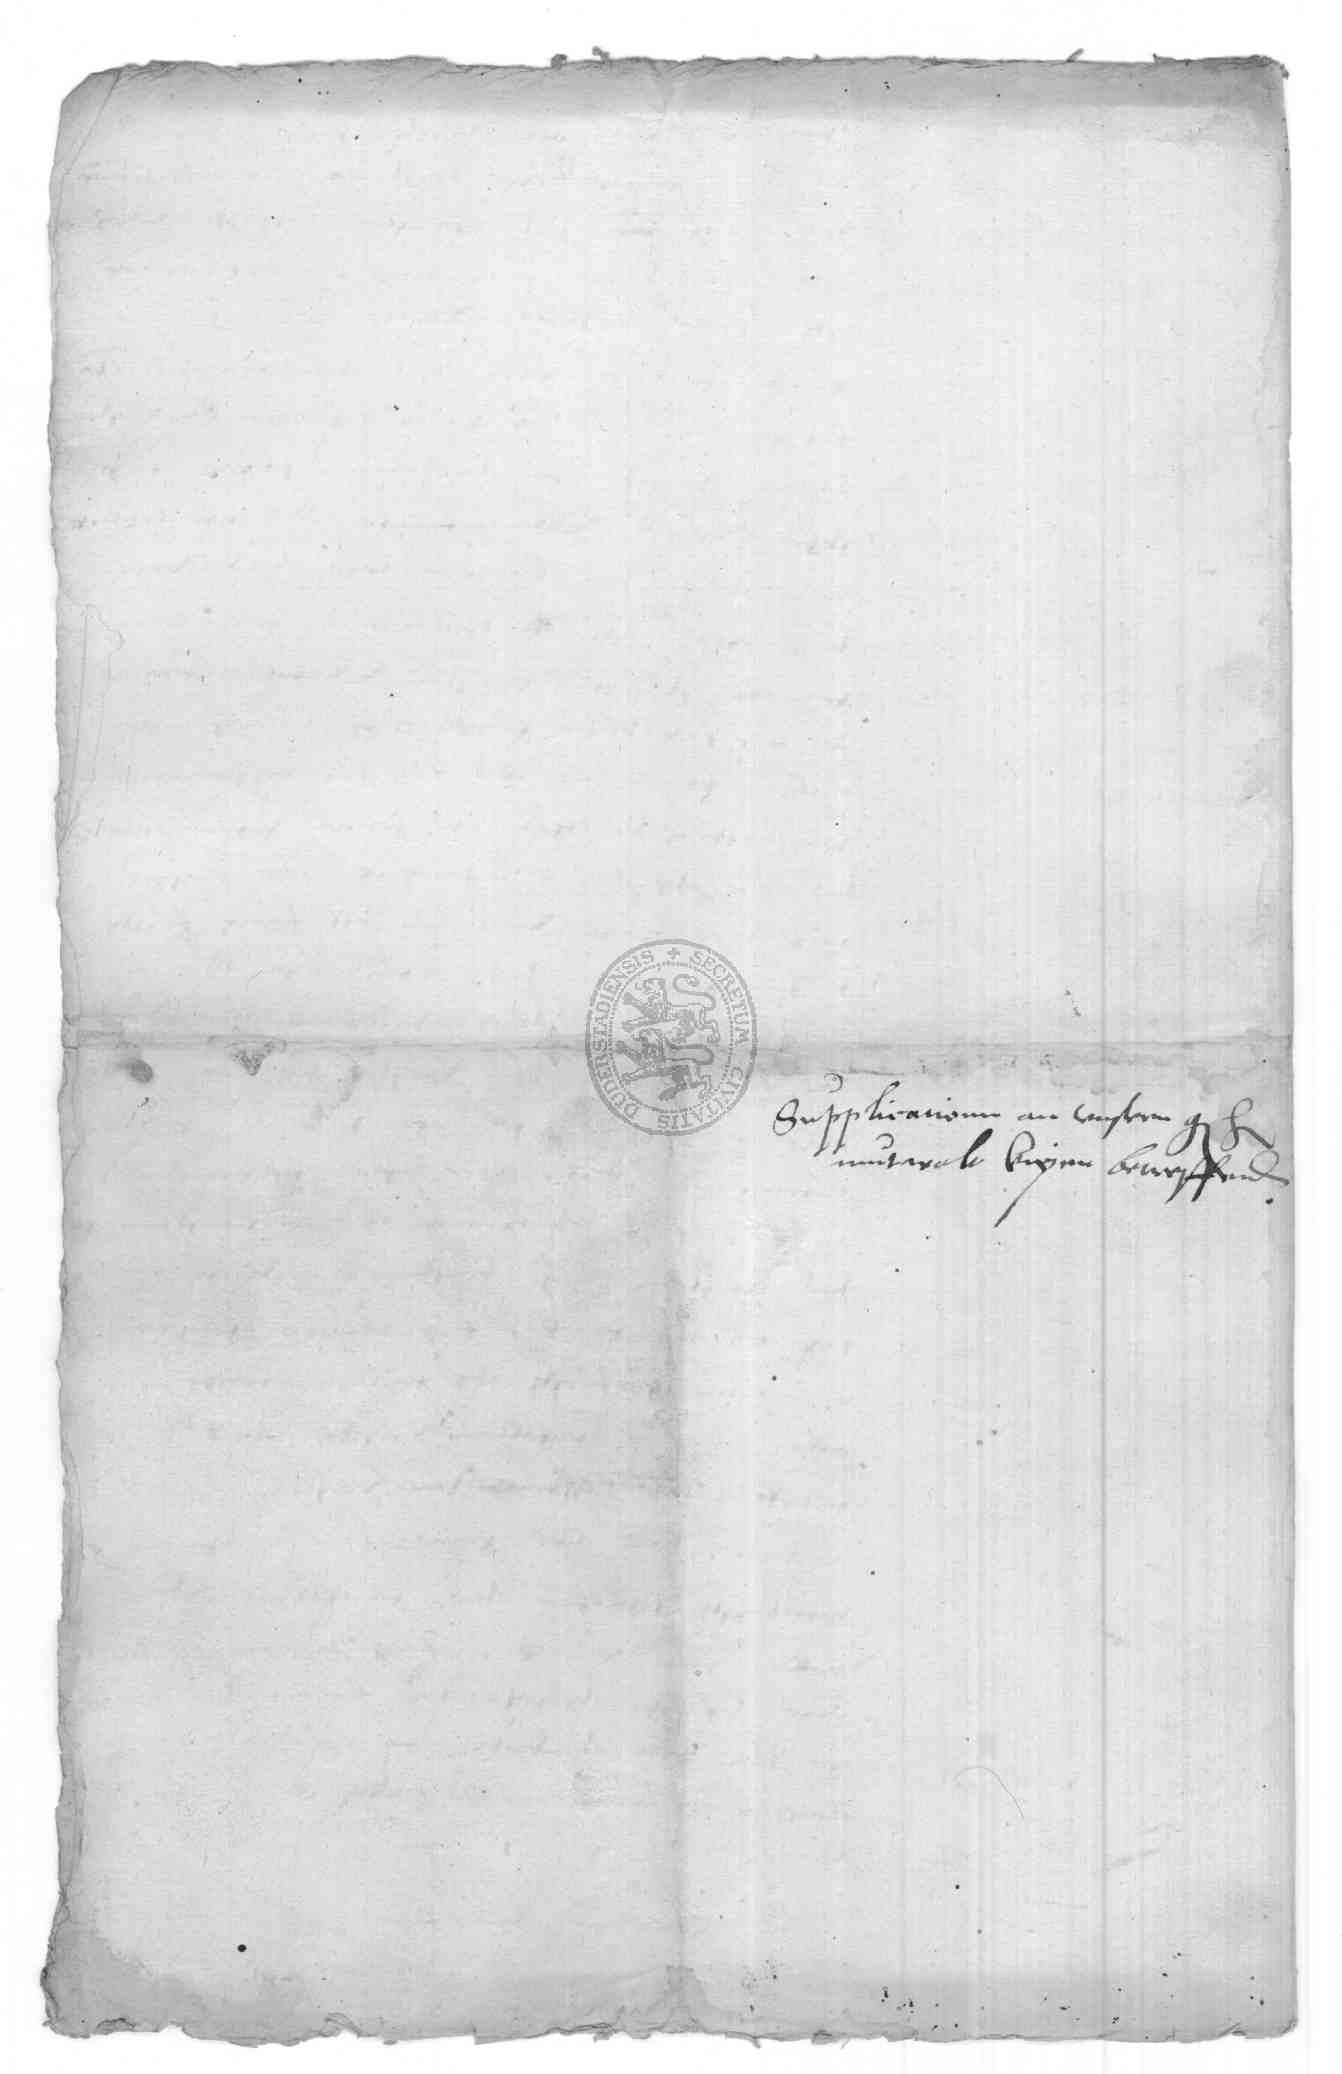 SECRETUM CIVITATIS DUDERSTADIENSIS
Supplicationn an vnsern g h
betreffend